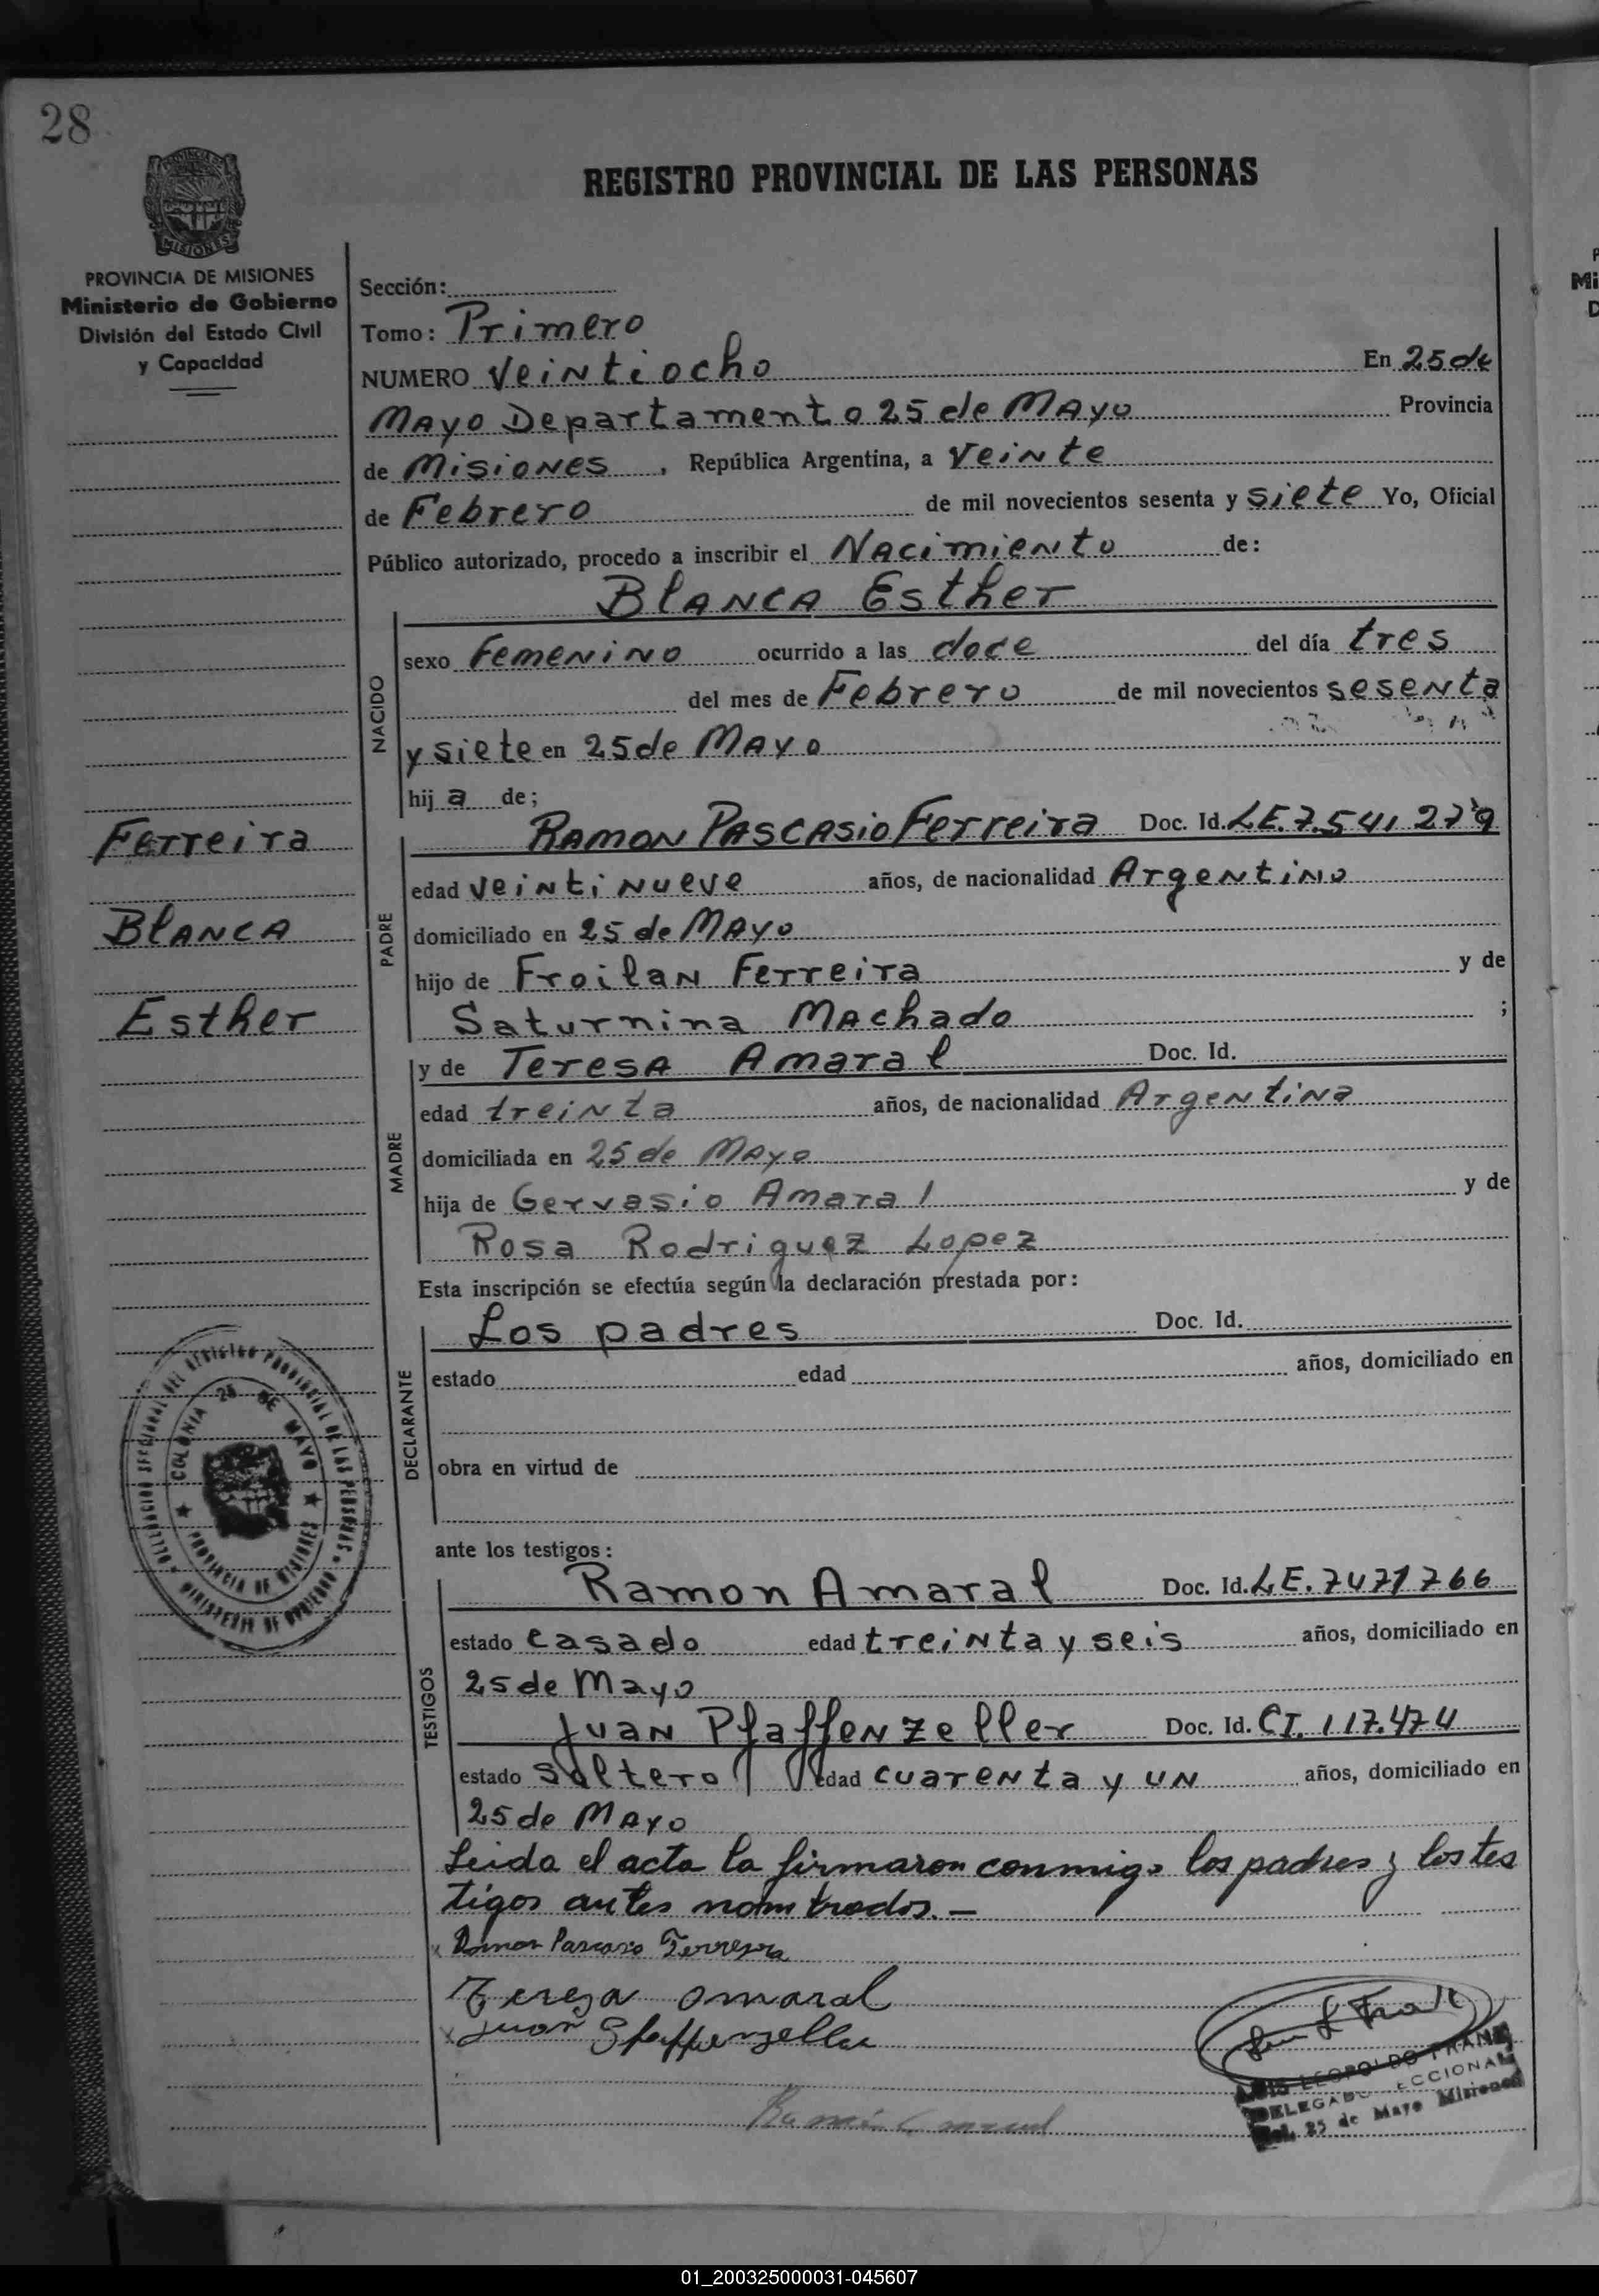 28
REGISTRO PROVINCIAL DE LAS PERSONAS
PROVINCIA DE MISIONES
Ministerio de Gobierno
División del Estado Civil
y Capacidad
Ferreira
Blanca
Esther
Sección:
Tomo: Primero
NUMERO Veintiocho En 25 de
Mayo Departamento 25 de Mayo Provincia
de Misiones, República Argentina, a Veinte
de Febrero de mil novecientos sesenta y siete Yo, Oficial
Público autorizado, procedo a inscribir el Nacimiento de:
Blanca Esther
NACIDO
sexo Femenino ocurrido a las doce del día tres
del mes de Febrero de mil novecientos sesenta
y siete en 25 de Mayo
hij a de;
PADRE
Ramon Pascasio Ferreira Doc. Id. LE. 7.541.279
edad veintinueve años, de nacionalidad Argentino
domiciliado en 25 de Mayo
hijo de Froilan Ferreira y de
Saturnina Machado ;
MADRE
y de Teresa Amaral Doc. Id.
edad treinta años, de nacionalidad Argentina
domiciliada en 25 de Mayo
hija de Gervasio Amaral y de
Rosa Rodriguez Lopez
Esta inscripción se efectúa según la declaración prestada por:
DECLARANTE
Los padres Doc. Id.
estado edad años, domiciliado en
obra en virtud de
ante los testigos:
TESTIGOS
Ramon Amaral Doc. Id. LE. 7471766
estado casado edad treinta y seis años, domiciliado en
25 de Mayo
Juan Pfaffenzeller Doc. Id. CI. 117.474
estado soltero edad cuarenta y un años, domiciliado en
25 de Mayo
Leida el acta la firmaron conmigo los padres y los tes
tigos antes nombrados.—
x Ramon Pascasio Ferreira
Tereza amaral
x Juan Pfaffenzeller
Ramón Amaral
COLONIA 25 DE MAYO
PROVINCIA DE MISIONES
MINISTERIO DE GOBIERNO
LUIS LEOPOLDO FRANK
DELEGADO SECCIONAL
Col. 25 de Mayo Misiones
01_200325000031-045607